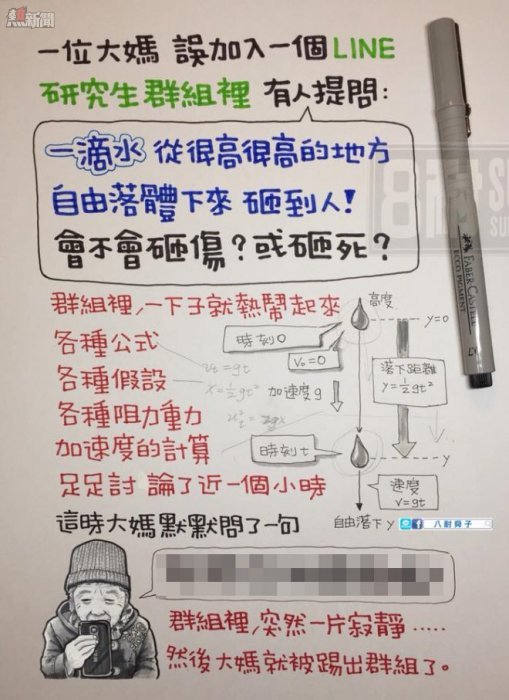 熱新聞
一位大媽 誤加入一個LINE
研究生群組裡 有人提問:
一滴水 從很高很高的地方
自由落體下來 砸到人!
會不會砸傷?或砸死?
群組裡,一下子就熱鬧起來
各種公式
各種假設
各種阻力重力
加速度的計算
足足討 論了近一個小時
高度
y=0
時刻0
v₀=0
加速度g
落下距離
y=½gt²
時刻t
y
速度
v=gt
自由落下 y
vt=gt
x=½gt²
八耐舜子
這時大媽默默問了一句
群組裡,突然一片寂靜.....
然後大媽就被踢出群組了。
FABER-CASTELL
ECCO PIGMENT